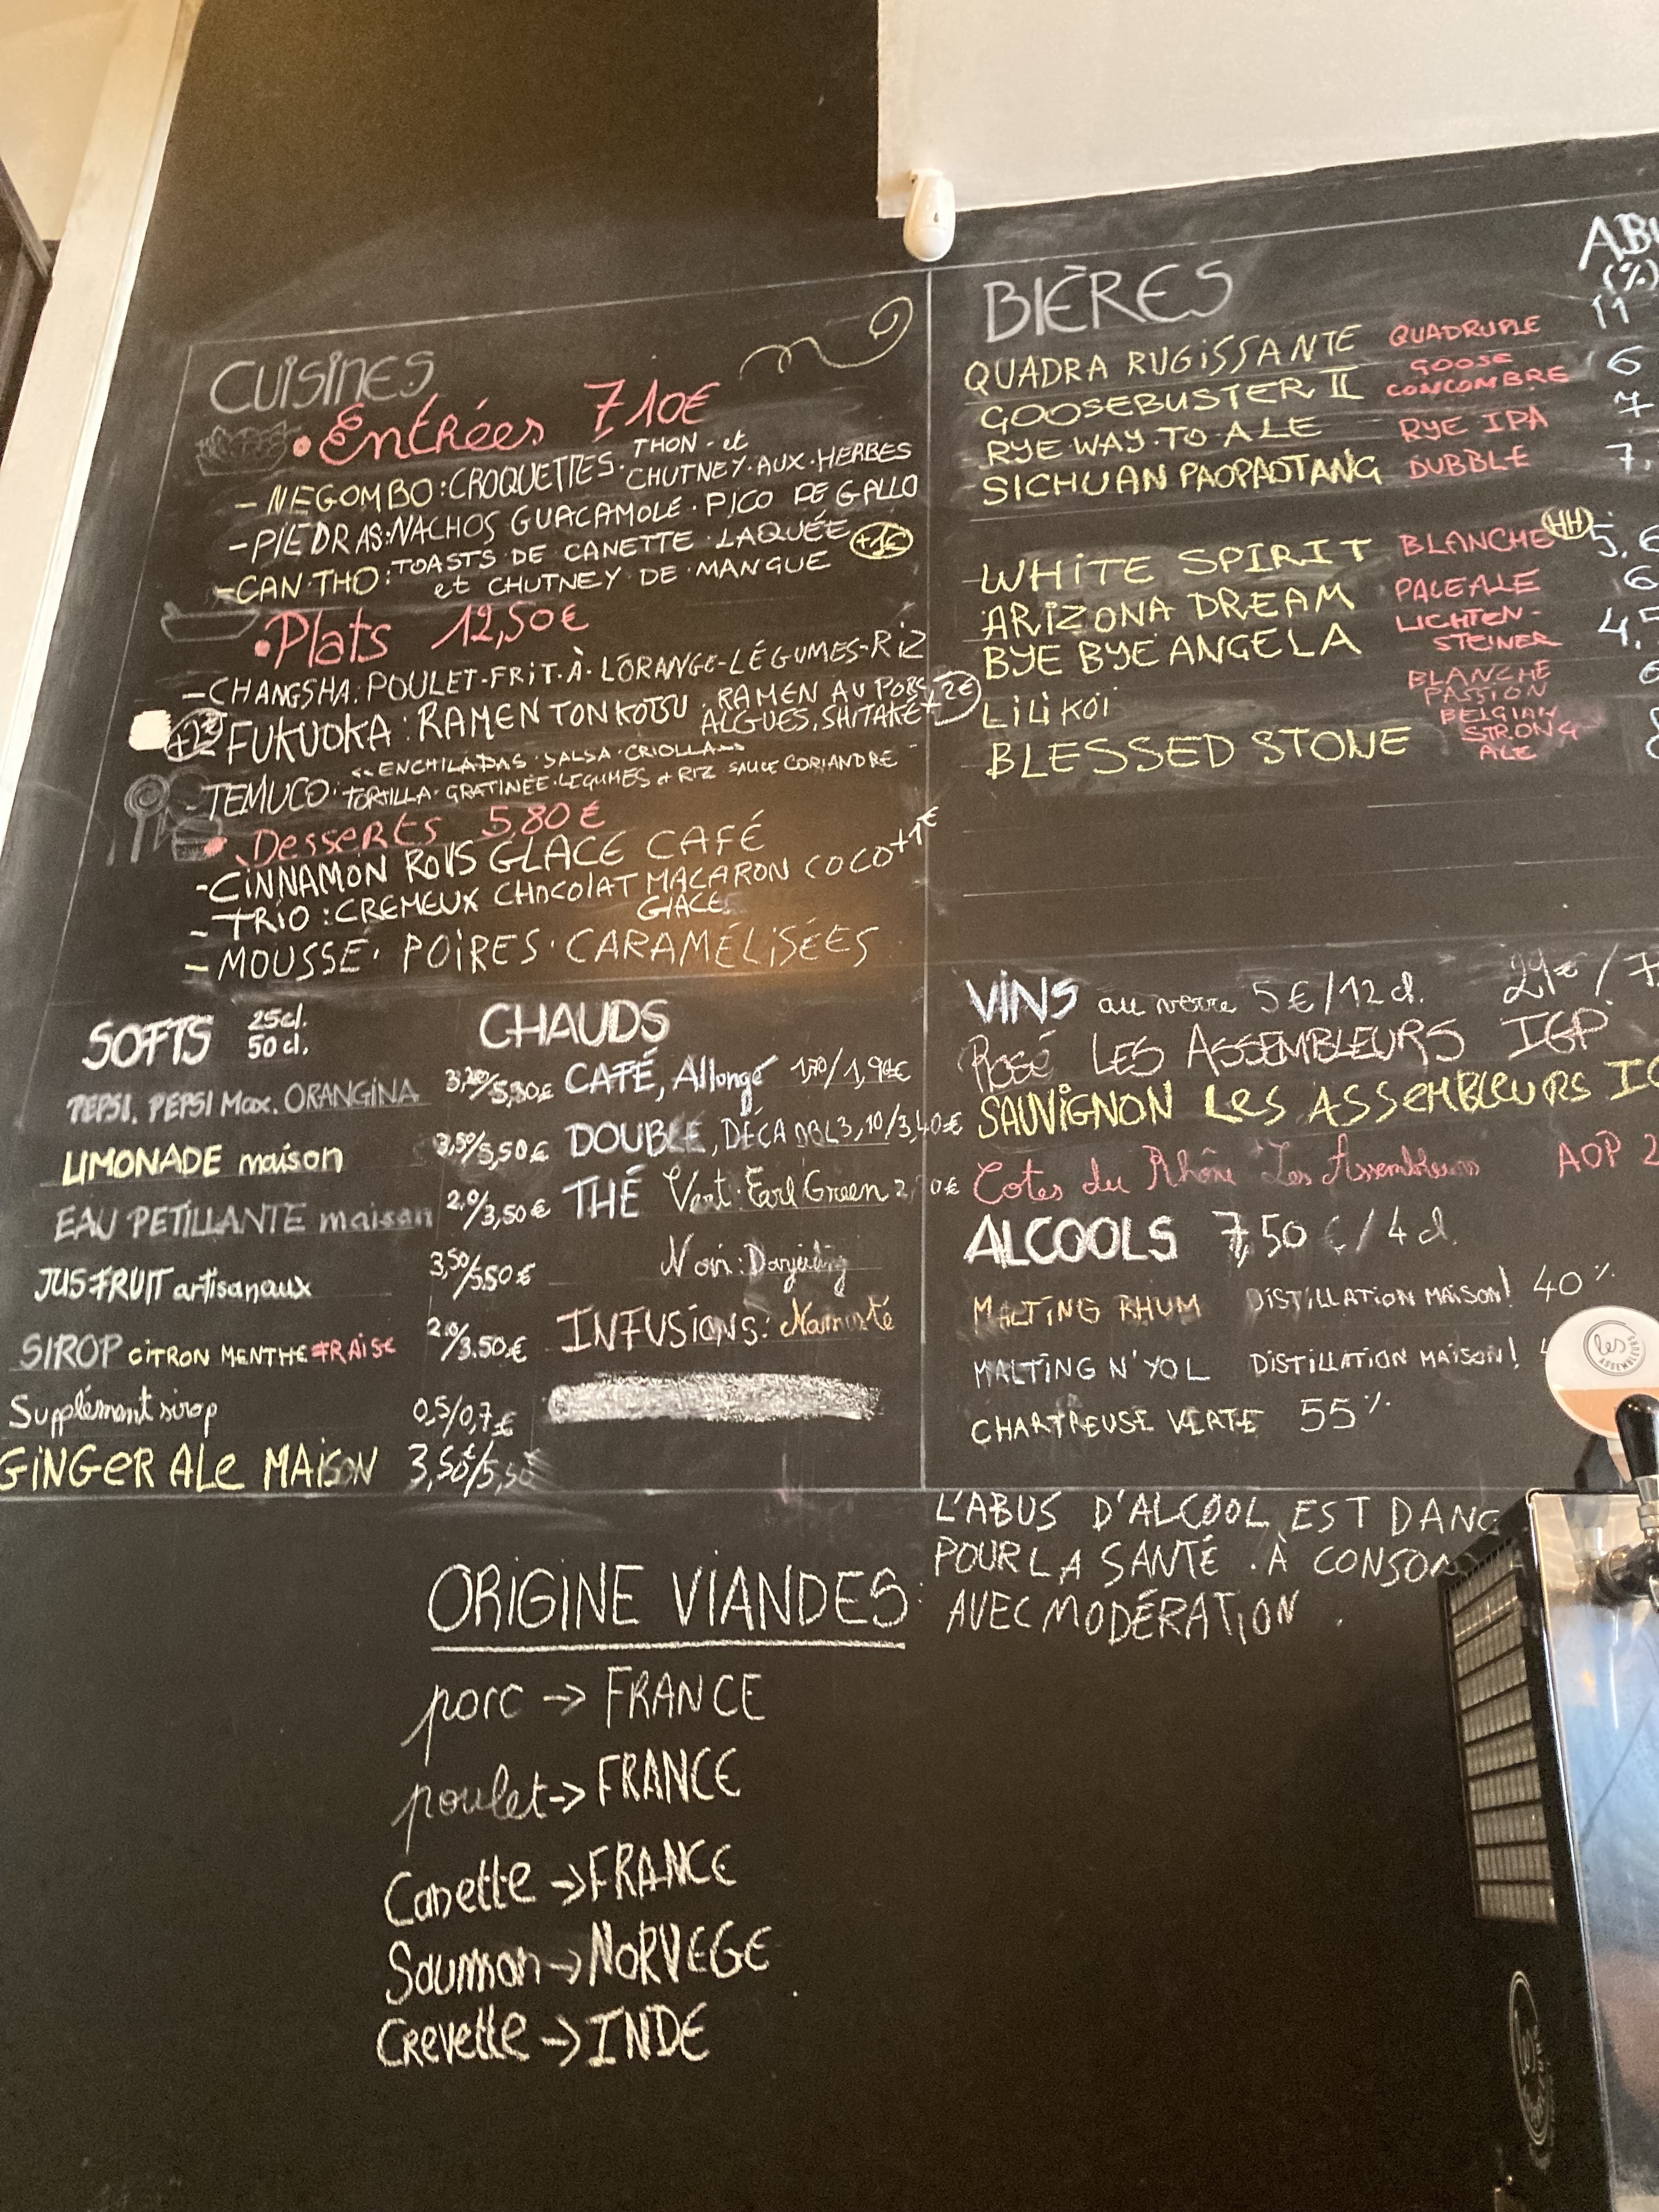 CUISINES
• Entrées 7,10€
- NEGOMBO : CROQUETTES · THON · et CHUTNEY · AUX · HERBES
- PIEDRAS : NACHOS GUACAMOLE · PICO DE GALLO
- CAN · THO : TOASTS DE CANETTE LAQUÉE +1€
et CHUTNEY DE · MANGUE
• Plats 12,50€
- CHANGSHA : POULET - FRIT · À · L'ORANGE - LÉGUMES - RIZ
+2€ FUKUOKA : RAMEN TONKOTSU · RAMEN AU PORC +2€
ALGUES, SHITAKE
- TEMUCO : ENCHILADAS · SALSA · CRIOLLA
TORTILLA · GRATINÉE · LEGUMES et RIZ SAUCE CORIANDRE -
• Desserts 5,80€
- CINNAMON ROLLS GLACE CAFÉ
- TRIO : CREMEUX CHOCOLAT MACARON COCO +1€
GLACE
- MOUSSE · POIRES · CARAMÉLISÉES
SOFTS 25cl.
50 cl.
PEPSI, PEPSI Max, ORANGINA
LIMONADE maison 3,50/5,50€
EAU PETILLANTE maison /3,50€
JUS FRUIT artisanaux 3,50/5,50€
SIROP CITRON MENTHE FRAISE /3.50€
Supplément sirop 0,5/0,7€
GINGER ALE MAISON 3,50€/5,50
CHAUDS
CAFÉ, Allongé
DOUBLE, DÉCA DBL 3,10/3,40€
THÉ Vert : Earl Green
Noir : Darjeeling
INFUSIONS : Namasté
BIÈRES
QUADRA RUGISSANTE QUADRUPLE 11
GOOSEBUSTER II GOOSE CONCOMBRE 6
RYE WAY · TO ALE RYE IPA 7
SICHUAN PAOPAOTANG DUBBLE 7,
WHITE SPIRIT BLANCHE HH 5,6
ARIZONA DREAM PALE ALE 6
BYE BYE ANGELA LICHTEN-STEINER 4,5
LILIKOÏ BLANCHE PASSION
BLESSED STONE BELGIAN STRONG ALE
VINS au verre 5€/12 cl. 29€/7
Rosé LES ASSEMBLEURS IGP
SAUVIGNON Les ASSEMBLEURS
Cotes du Rhône Les Assembleurs AOP 2
ALCOOLS 7,50 €/4 cl.
MALTING RHUM DISTILLATION MAISON! 40%
MALTING N'YOL DISTILLATION MAISON!
CHARTREUSE VERTE 55%
les ASSEMBLEURS
L'ABUS D'ALCOOL EST DANG
POUR LA SANTÉ . À CONSO
AVEC MODÉRATION .
ORIGINE VIANDES :
porc -> FRANCE
poulet -> FRANCE
Canette -> FRANCE
Saumon -> NORVEGE
Crevette -> INDE